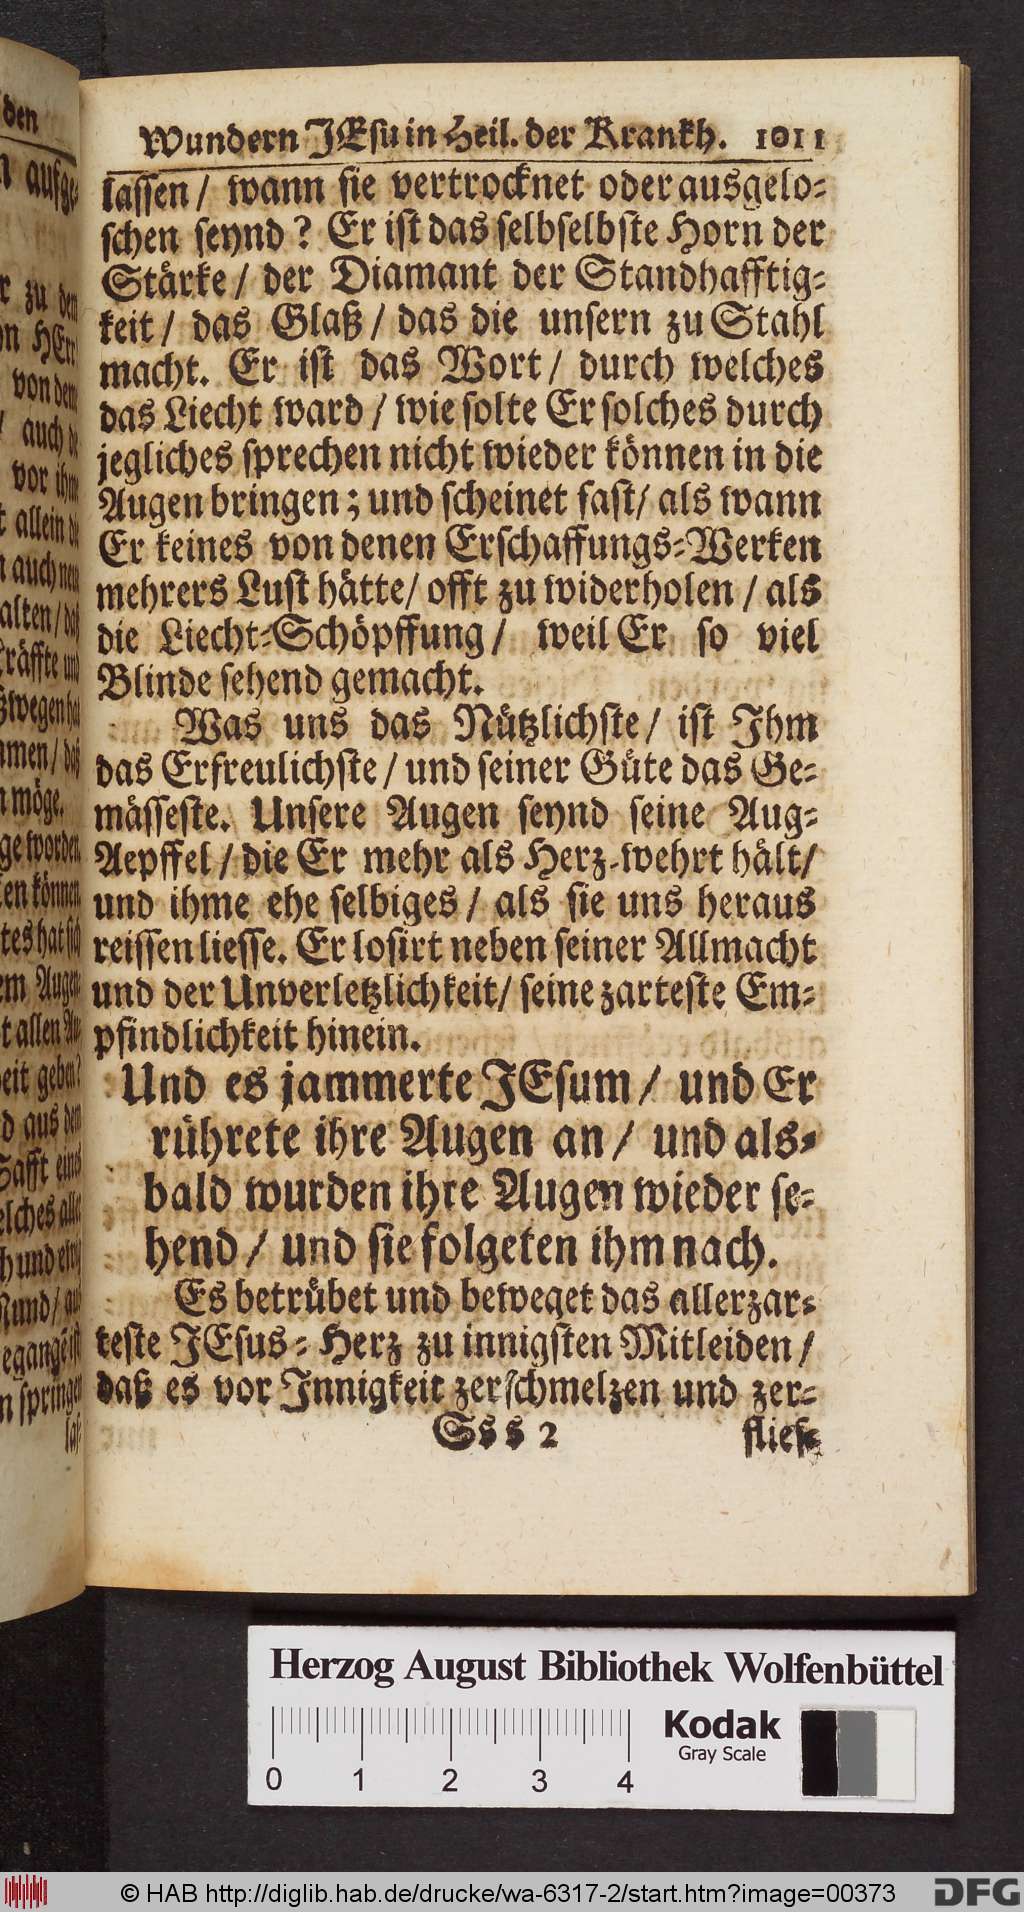 den
n aufge-
r zu den
n HErr
von dem
/ auch de
vor ihm
t allein die
n auch nen
alten / daß
Kräffte und
ßwegen hat
mmen / daß
n möge.
ge worden
en können
tes hat sich
em Augen
t allen Au-
eit geben?
d aus dem
Safft eins
elches alle
h und
Rund / aus
egangē ist
n springen
las-
Wundern JEsu in Heil. der Krankh. 1011
lassen / wann sie vertrocknet oder ausgelo-
schen seynd? Er ist das selbselbste Horn der
Stärke / der Diamant der Standhafftig-
keit / das Glaß / das die unsern zu Stahl
macht. Er ist das Wort / durch welches
das Liecht ward / wie solte Er solches durch
jegliches sprechen nicht wieder können in die
Augen bringen; und scheinet fast / als wann
Er keines von denen Erschaffungs-Werken
mehrers Lust hätte / offt zu widerholen / als
die Liecht-Schöpffung / weil Er so viel
Blinde sehend gemacht.
Was uns das Nützlichste / ist Ihm
das Erfreulichste / und seiner Güte das Ge-
mässeste. Unsere Augen seynd seine Aug-
Aepffel / die Er mehr als Herz-wehrt hält /
und ihme ehe selbiges / als sie uns heraus
reissen liesse. Er losirt neben seiner Allmacht
und der Unverletzlichkeit / seine zarteste Em-
pfindlichkeit hinein.
Und es jammerte JEsum / und Er
rührete ihre Augen an / und als-
bald wurden ihre Augen wieder se-
hend / und sie folgeten ihm nach.
Es betrübet und beweget das allerzar-
teste JEsus-Herz zu innigsten Mitleiden /
daß es vor Innigkeit zerschmelzen und zer-
Sss 2 flies-
Herzog August Bibliothek Wolfenbüttel
0 1 2 3 4
Kodak
Gray Scale
© HAB http://diglib.hab.de/drucke/wa-6317-2/start.htm?image=00373
DFG